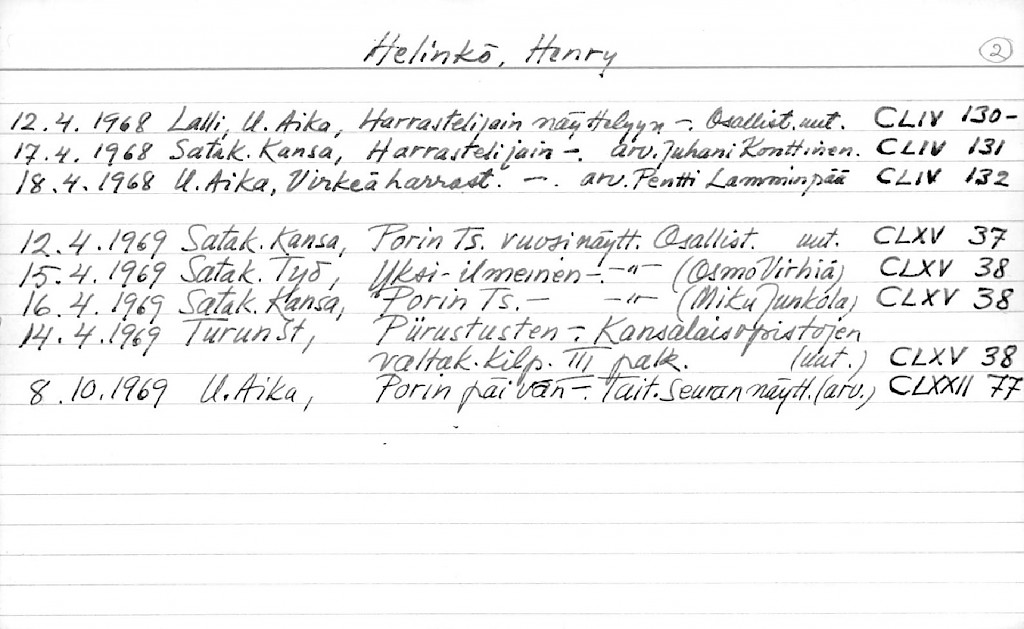 Helinkö, Henry 2
12.4. 1968 Lalli, U. Aika, Harrastelijain näyttelyyn -. Osallist. uut. CLIV 130-
17.4. 1968 Satak. Kansa, Harrastelijain -. arv. Juhani Konttinen. CLIV 131
18.4. 1968 U. Aika, Virkeä harrast. -. arv. Pentti Lamminpää CLIV 132
12.4. 1969 Satak. Kansa, Porin Ts. vuosinäytt. Osallist. uut. CLXV 37
15.4. 1969 Satak. Työ, Yksi-ilmeinen -. -"- (Osmo Virhiä) CLXV 38
16.4. 1969 Satak. Kansa, Porin Ts. - -"- (Miku Junkola) CLXV 38
14.4. 1969 Turun St, Piirustusten -. Kansalaisopistojen
valtak. kilp. III palk. (uut.) CLXV 38
8.10.1969 U. Aika, Porin päivän -. Tait. Seuran näytt. (arv.) CLXXII 77